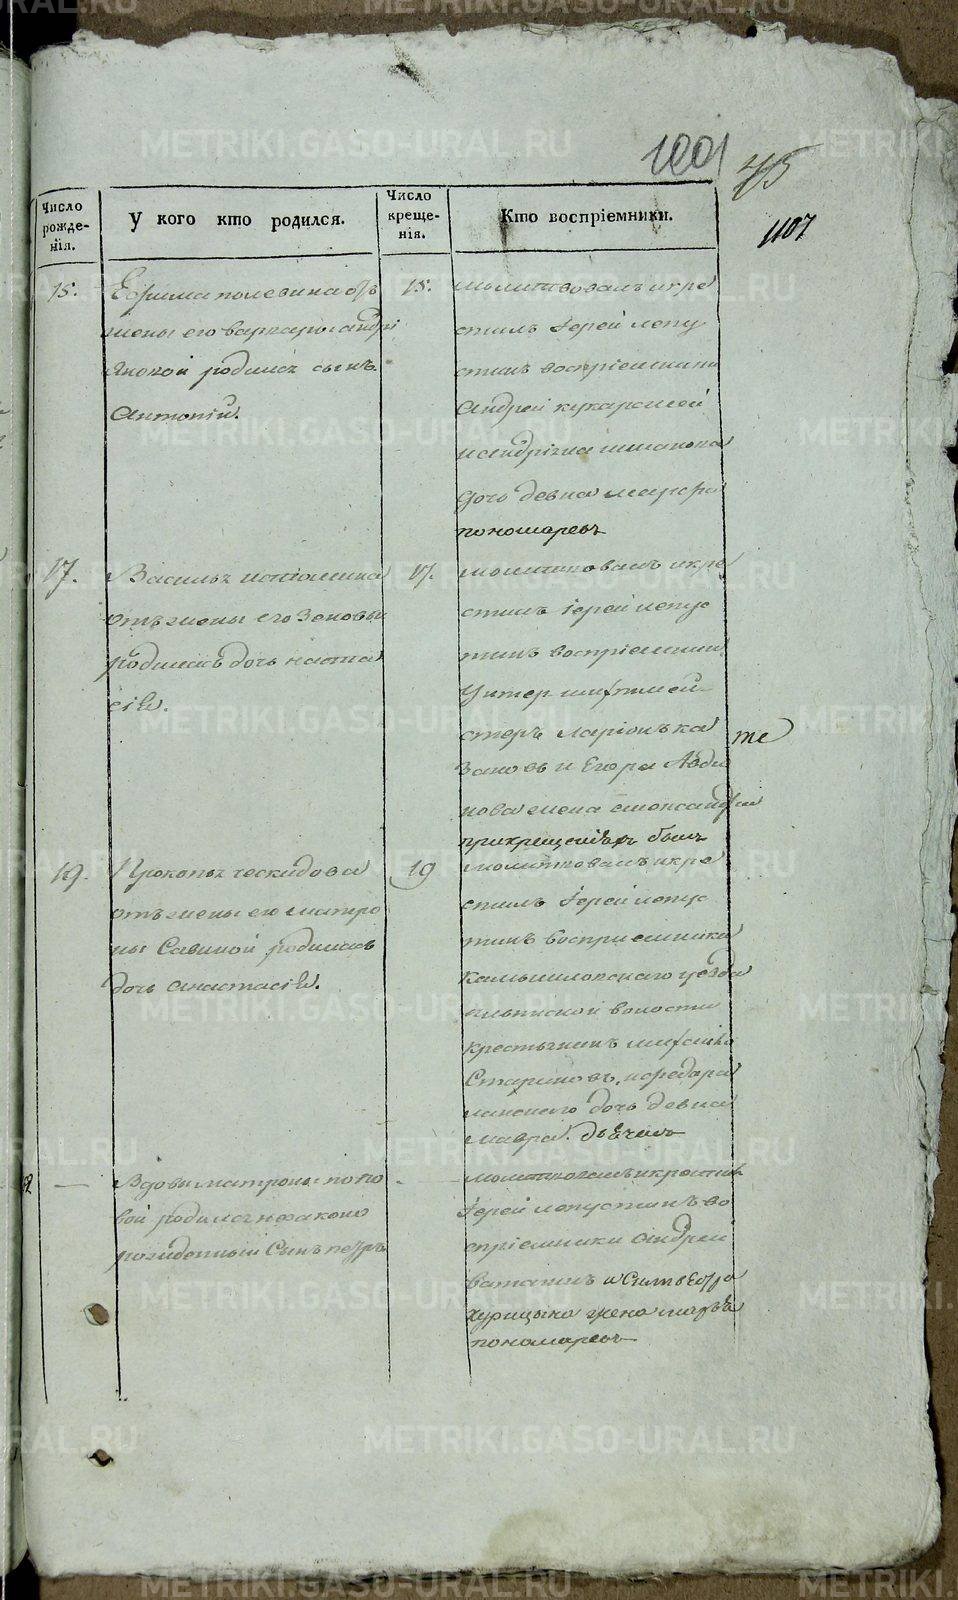 1201
45
1107
Число рожде-нія.
У кого кто родился.
Число креще-нія.
Кто воспріемники.
15.
Ефима полевина отъ
жены его варвары андрі
яновой родился сынъ
Антоній.
15.
молитвовалъ и кре
стилъ Іерей лопу
стинъ воспріемники
Андрей
дочь девка марфа
пономаревъ
17.
Василья
отъ жены его Зеновьи
родилась дочь наста
сія.
17.
молитвовалъ и кре
стилъ іерей лопус
тинъ воспріемники
Унтер шихтмей
стеръ Ларіонъ ка
заковъ и Егора Авди
нова жена
прикрещеніи былъ
те
19.
Прокопья
отъ жены его матро
ны Савиной родилась
дочь анастасія.
19
молитвовалъ и кре
стилъ Іерей лопус
тинъ восприемники
камышловскаго уезда
волости
крестьянинъ
Стариковъ, и федора
дочь девка
мавра. дьячекъ
Вдовы матроны попо
вой родился незаконо
рожденный Сынъ петръ
молитвовалъ и крестилъ
Іерей лопустинъ во
спріемники андрей
ватагинъ и
жена марья
пономаревъ
METRIKI.GASO-URAL.RU